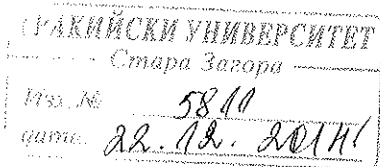 ТРАКИЙСКИ УНИВЕРСИТЕТ
Стара Загора
Изх. №
5811
дата.
22. 12. 2014